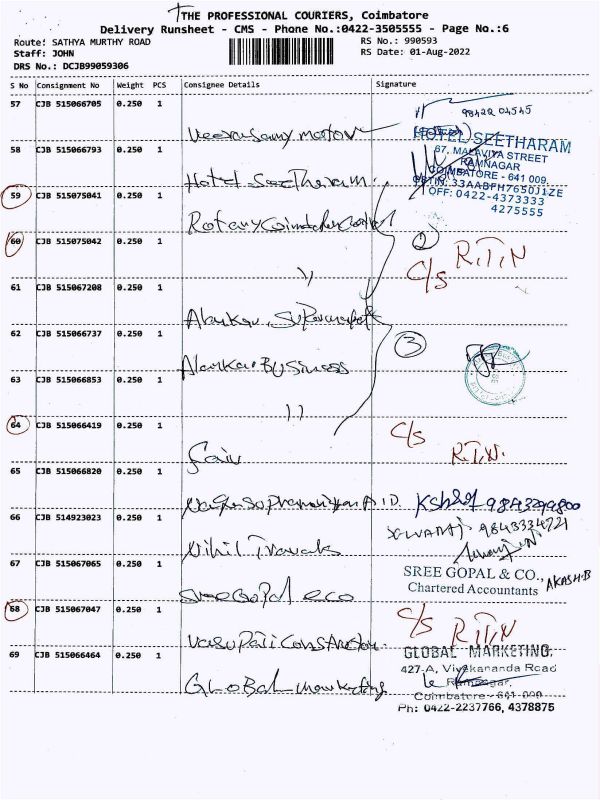 THE PROFESSIONAL COURIERS, Coimbatore
Delivery Runsheet - CMS - Phone No.:0422-3505555 - Page No.:6
Route: SATHYA MURTHY ROAD
RS No.: 990593
Staff: JOHN
RS Date: 01-Aug-2022
DRS No.: DCJB99059306
S No Consignment No Weight PCS Consignee Details Signature
57 CJB 515066705 0.250 1
98422 04545
Veerasamy motor
HOTEL SEETHARAM
58 CJB 515066793 0.250 1
67, MALAVIYA STREET
RAMNAGAR
COIMBATORE - 641 009.
Hotel Seetharam.
GSTIN: 33AABFH7650J1ZE
59 CJB 515075041 0.250 1
OFF: 0422-4373333
4275555
Rotary Coimbatore Central
60 CJB 515075042 0.250 1
2
C/s R.T.N
"
61 CJB 515067208 0.250 1
Alankar Supermarket
62 CJB 515066737 0.250 1
3
Alankar Business
63 CJB 515066853 0.250 1
"
64 CJB 515066419 0.250 1
C/s R.T.N.
65 CJB 515066820 0.250 1
9843299800
66 CJB 514923023 0.250 1
9843334721
Nihil Travels
67 CJB 515067065 0.250 1
SREE GOPAL & CO.,
Chartered Accountants
AKASH.B
Sree Gopal eco
68 CJB 515067047 0.250 1
C/s R.T.N
Vasupati Construction
GLOBAL MARKETING.
69 CJB 515066464 0.250 1
427-A, Vivekananda Road
Ramnagar,
Global marketing
Coimbatore - 641 009
Ph: 0422-2237766, 4378875